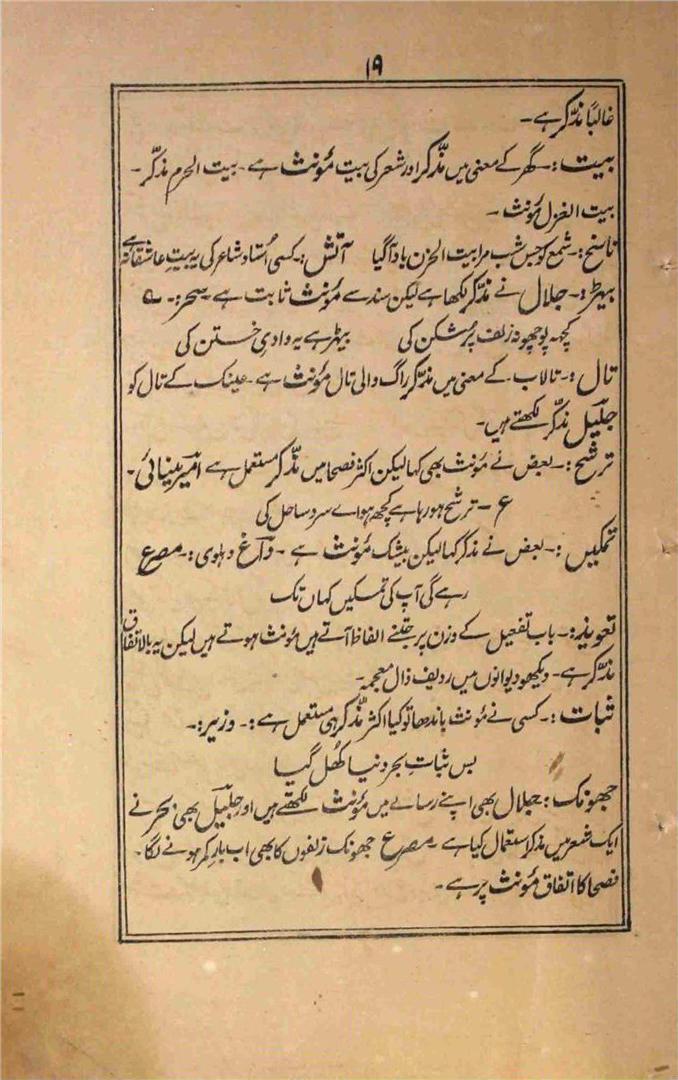 ۱۹
غالباً مذکّر ہے۔
بیت:۔ گھر کے معنی میں مذّکر اور شعر کی بیت مؤنث ہے۔ بیت الحرم مذکّر۔
بیت الغزل مؤنث۔
ناسخ:۔ شمع کو جس شب مرا بیت الحزن یاد آگیا آتش:۔ کسی اُستاد شاعر کی یہ بیتِ عاشقانہ ہے
بیہڑ:۔ جلال نے مذّکر لکھا ہے لیکن سند سے مؤنث ثابت ہے۔ سحر:۔ ؎
کچھ پوچھو نہ زلف پُرشکن کی بیہڑ ہے یہ وادیِ ختن کی
تال:۔ تالاب کے معنی میں مذّکر راگ والی تال مؤنث ہے۔ عینک کے تال کو
جلیل مذّکر لکھتے ہیں۔
ترشح:۔ بعض نے مؤنث بھی کہا لیکن اکثر فصحا میں مذّکر مستعمل ہے امیر مینائی۔
ع۔ ترشح ہو رہا ہے کچھ ہواے سرد ساحل کی
تمکیں:۔ بعض نے مذکر کہا لیکن بیشک مؤنث ہے۔ داغ دہلوی:۔ مصرع
رہے گی آپ کی تمکیں کہاں تک
تعویذ:۔ باب تفعیل کے وزن پر جتنے الفاظ آتے ہیں مؤنث ہوتے ہیں لیکن یہ بالاتفاق
مذّکر ہے۔ دیکھو دیوانوں میں ردیف ذال معجمہ۔
ثبات:۔ کسی نے مؤنث باندھا تو کیا اکثر مذّکر ہی مستعمل ہے:۔ وزیر:۔
بس ثباتِ بحرِ دنیا کھُل گیا
جھونک:۔ جلال بھی اپنے رسالے میں مؤنث لکھتے ہیں اور جلیل بھی بحر نے
ایک شعر میں مذکر استعمال کیا ہے۔ مصرع جھونک زلفوں کا بھی اب بار کمر ہونے لگا۔
فصحا کا اتفاق مؤنث پر ہے۔